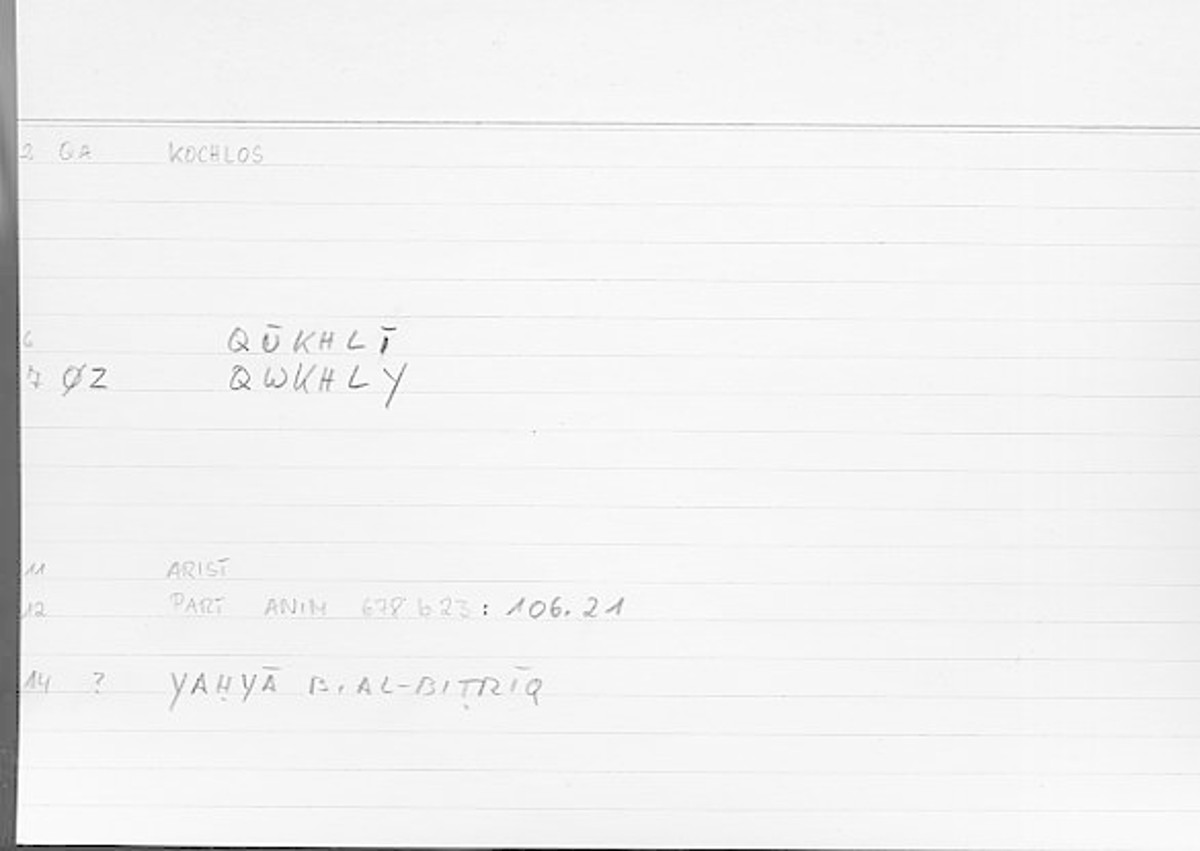 2 QA KOCHLOS
6 QŪKHLĪ
7 ØZ QWKHLY
11 ARIST
12 PART ANIM 678 b 23: 106.21
14 ? YAḤYĀ B. AL-BIṬRĪQ